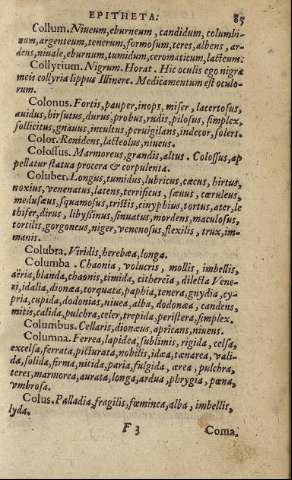 EPITHETA. 85
Collum. Niueum, eburneum, candidum, columbi-
num, argenteum, tenerum, formosum, teres, albens, ar-
dens, niuale, eburnum, tumidum, ceromaticum, lacteum.
Collyrium. Nigrum. Horat. Hic oculis ego nigra
meis collyria lippus Illinere. Medicamentum est oculo-
rum.
Colonus. Fortis, pauper, inops, miser, lacertosus,
auidus, hirsutus, durus, probus, rudis, pilosus, simplex,
sollicitus, gnauus, incultus, peruigilans, indecor, solers.
Color. Renidens, lacteolus, niueus.
Colossus. Marmoreus, grandis, altus. Colossus, ap
pellatur statua procera & corpulenta.
Coluber. Longus, tumidus, lubricus, cæcus, hirtus,
noxius, venenatus, latens, terrificus, sæuus, cæruleus,
medusæus, squamosus, tristis, cinyphius, tortus, ater, le
thifer, dirus, libyssinus, sinuatus, mordens, maculosus,
tortilis, gorgoneus, niger, venenosus, flexilis, trux, im-
manis.
Colubra. Viridis, herbæa, longa.
Columba. Chaonia, volucris, mollis, imbellis,
aëria, blanda, chaonis, timida, cithereia, dilecta Vene-
ri, idalia, dionæa, torquata, paphia, tenera, gnydia, cy-
pria, cupida, dodonias, niuea, alba, dodonæa, candens,
mitis, calida, pulchra, celer, trepida, peristera, simplex.
Columbus. Cellaris, dionæus, apricans, niuens.
Columna. Ferrea, lapidea, sublimis, rigida, celsa,
excelsa, ferrata, picturata, nobilis, idæa, tænarea, vali-
da, solida, firma, nitida, paria, fulgida, ærea, pulchra,
teres, marmorea, aurata, longa, ardua, phrygia, pœna,
vmbrosa.
Colus. Palladia, fragilis, fœminea, alba, imbellis,
lyda.
F 3 Coma.